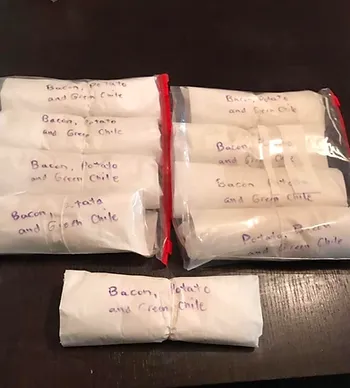 Bacon, Potato
and Green Chile
Bacon, Potato
and Green Chile
Bacon, Potato
and Green Chile
Bacon, Potato
and Green Chile
Bacon, Potato
and Green Chile
Bacon,
and Green Chile
Bacon
and Green Chile
Potato, Bacon
and Green Chile
Bacon, Potato
and Green Chile